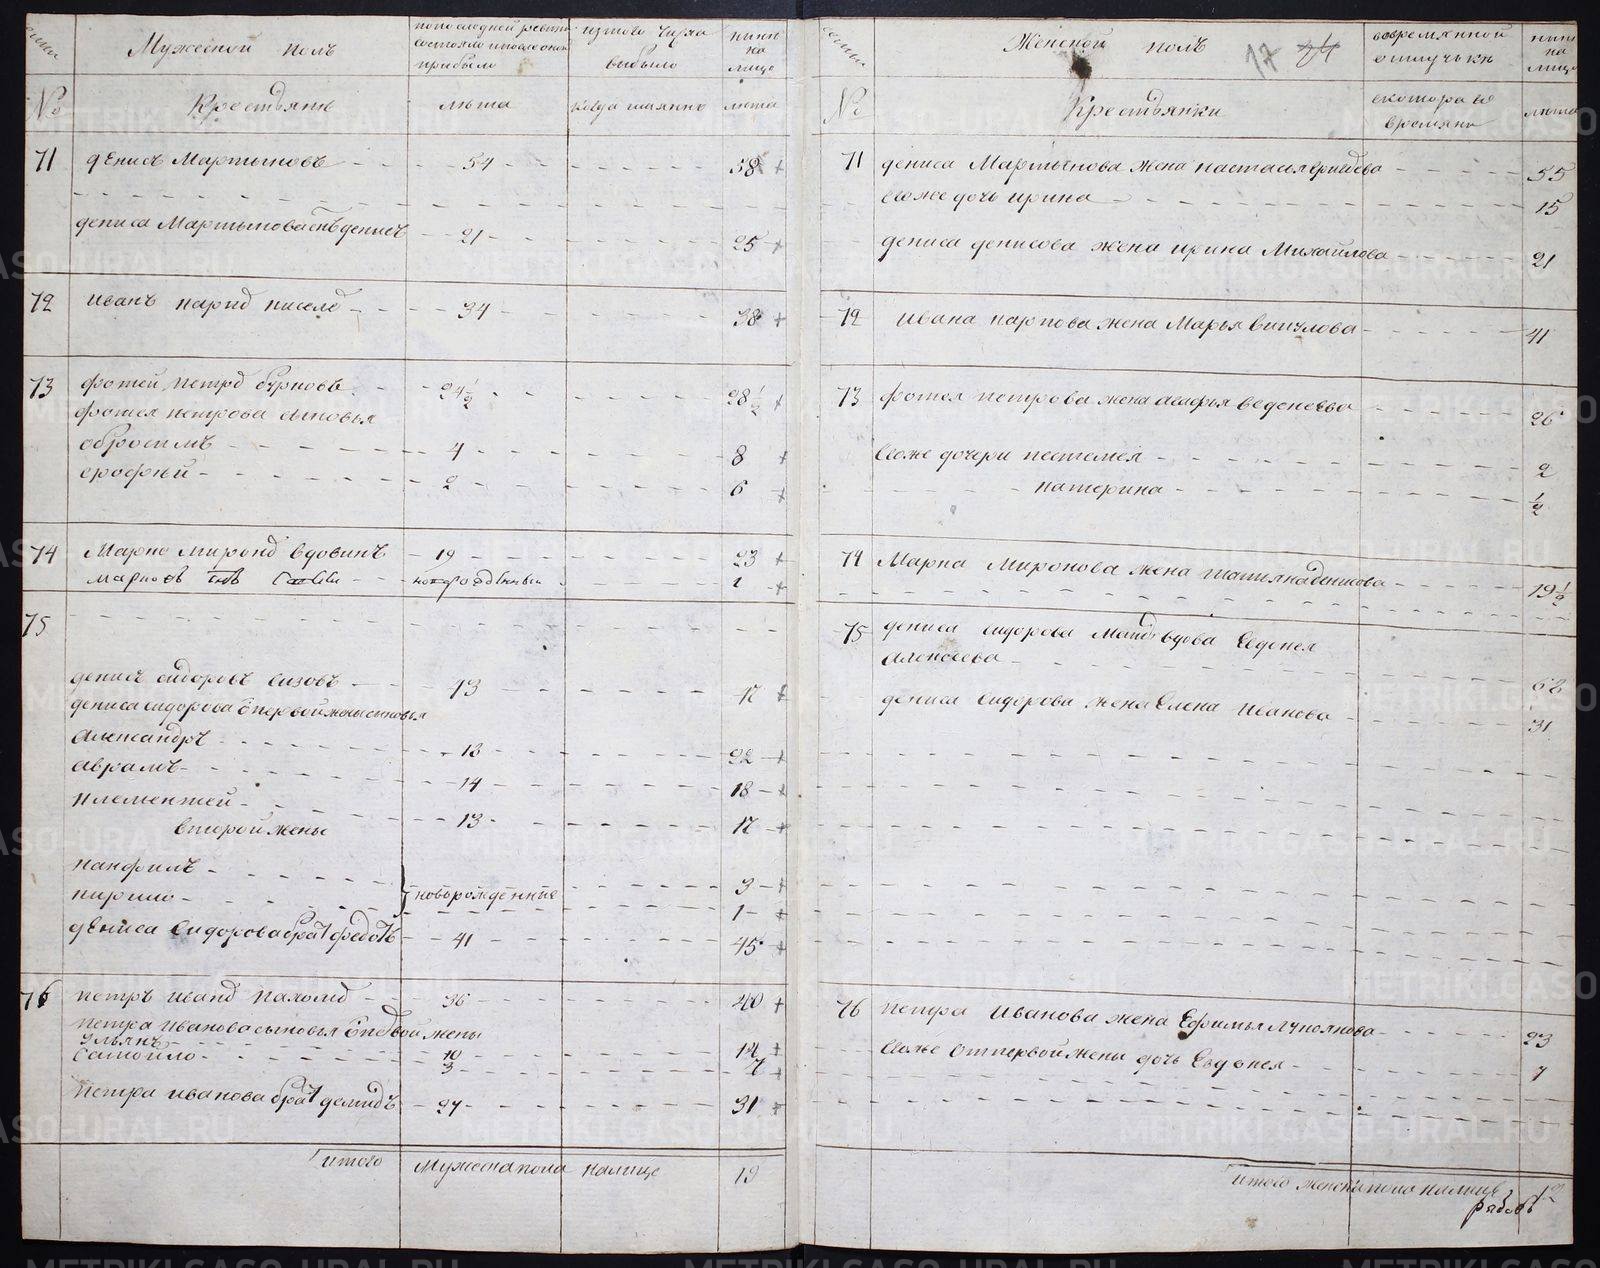 Мужеской полъ
по последней ревизии состояло и после оной прибыло
из того числа выбыло
ныне на лицо
№
Крестьяне
лета
когда имянно
лета
71 денисъ Мартыновъ 54 58
дениса Мартынова снъ денисъ 21 25
72 иванъ 34 38
73 фотей петро 24½ 28½
фотея петрова сыновья
обросимъ 4 8
ерофей 2 6
74 Марко мироно вдовинъ 19 23
марковъ снъ новорожденный 1
75
денисъ сидоровъ сизовъ 13 17
дениса сидорова о первой жены сыновья
александръ 18 22
аврамъ 14 18
клементей 13 17
второй жены
панфилъ 3
кирило новорожденные 1
дениса сидорова братъ федотъ 41 45
76 петръ ивано пахомо 36 40
петра иванова сыновья о первой жены
ульянъ 10 14
самойло 3 7
петра иванова братъ демидъ 27 31
итого мужеска пола налице 19
Женской полъ
17 24
во временной отлучьке
ныне на лицо
№
Крестьянки
с которого времяни
лета
71 дениса Мартынова жена настасья 55
ево же дочь ирина 15
дениса денисова жена ирина Михайлова 21
72 ивана карпова жена Марья викулова 41
73 фотея петрова жена агафья веденеева 26
ево же дочери пестемея 2
катерина ½
74 Марка Миронова жена татьяна денисова 19½
75 дениса сидорова мать вдова Евдокея
алексеева 62
дениса сидорова жена Елена Иванова 31
76 петра Иванова жена Ефимья лукоянова 23
ево же от первой жены дочь Евдокея 7
итого женска пола налице 12
METRIKI.GASO-URAL.RU